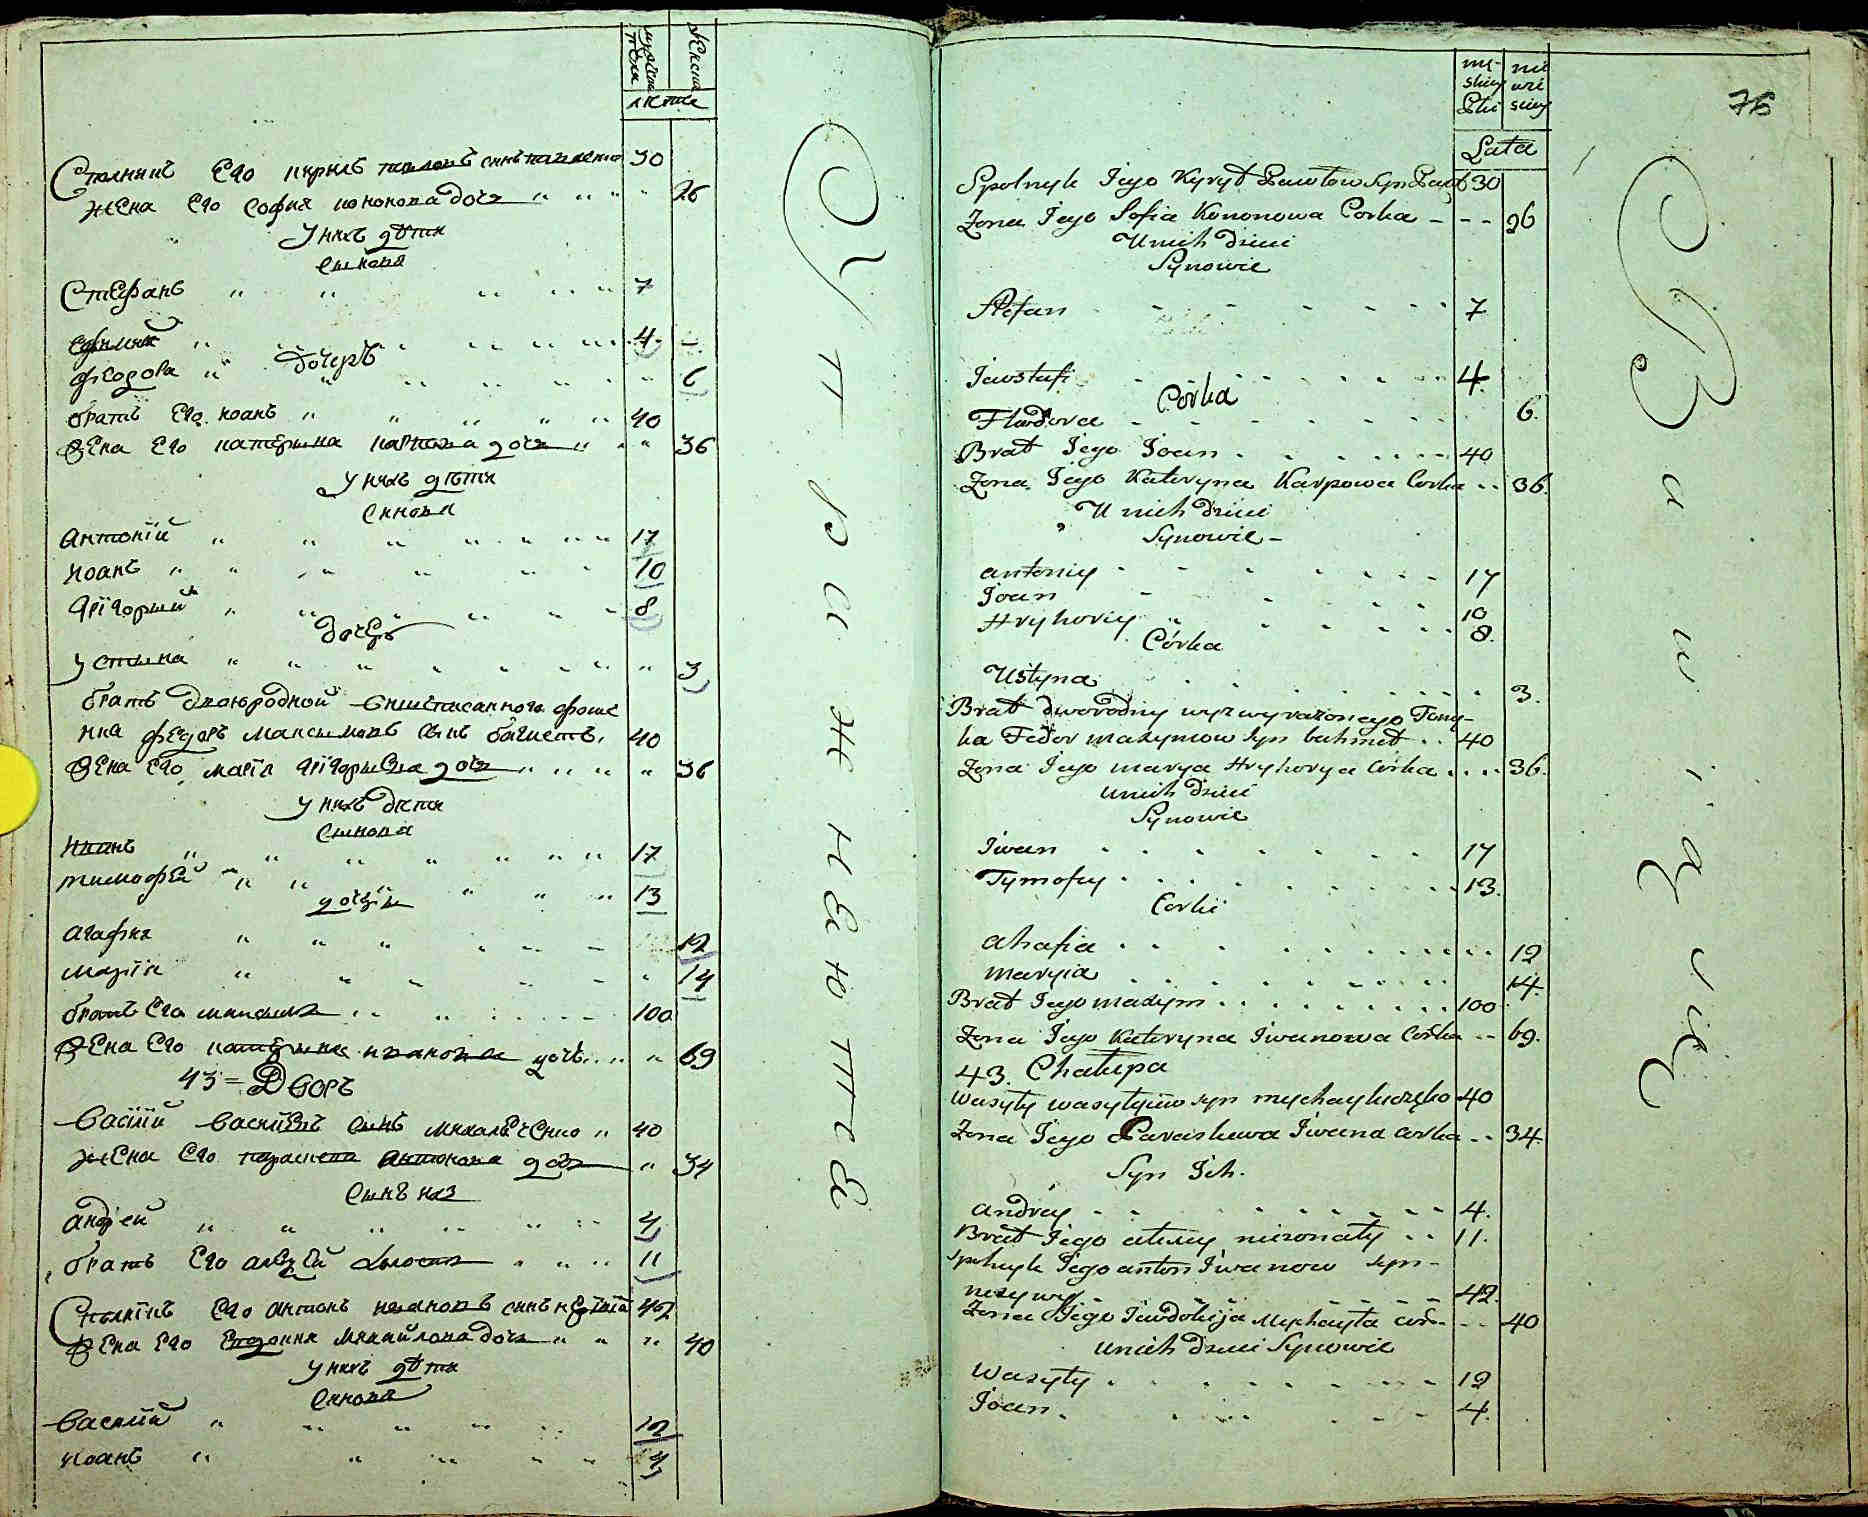 мужеска пола
женска
лета
Спольникъ Его кирилъ павловъ синъ 30
жена Его София кононова дочь " " " " 26
У нихъ дѣти
сынове
Стефанъ " " " " " 7
" " " " " 4
дочерь
феодора " " " " " " 6
братъ Его иоанъ " " " " " 40
Жена Его катерина карпова дочь " " " 36
У нихъ дѣти
синове
Антоній " " " " " " " 17
иоанъ " " " " " " 10
григорий " " " " " " 8
дочерь
устина " " " " " " " " 3
братъ двоюродной вишеписанного
федоръ максимовъ синъ 40
Жена Его марія григорьева дочь " " " " 36
У нихъ дѣти
сынове
иванъ " " " " " " " 17
тимофей " " " " " 13
дочери
агафия " " " " " 12
марія " " " " 14
братъ Его максимъ " " 100
Жена Его катерина иванова дочь " " " 69
43 = Дворъ
василій василіевъ синъ михальченко " 40
жена Его параскева антонова дочь " 34
Сынъ ихъ
андрей " " " " " " 4
братъ Его алексѣй холостъ " " " 11
Сполникъ Его антонъ ивановъ синъ 42
Жена Его Евдокия михайлова дочь " " " 40
У нихъ дѣти
синове
василій " " " " " 12
иоанъ " " " " " 4
У т р и ж н е ю т ъ
męskiey Płci
niewiesciey
Lata
76
Spolnyk Jego Kyrył Pawłow Syn 30
Zona Jego Sofia Kononowa Corka - - - 26
U nich dzieci
Synowie
Stefan - - - - - - - 7
Jewstafi - - - - - - 4
Córka
Fedora - - - - - - - 6.
Brat Jego Joan . . . . . . . 40
Zona Jego Kateryna Karpowa Corka . . 36.
U nich dzieci
Synowie -
antoniy - - - - - - - 17
Joan - - - - 10
Hryhoriy - - - - - 8.
Córka
Ustyna . . . . . . . . 3.
Brat dworodny wyzwyrazonego
ka Fedor maxymow syn bahmet . . 40
Zona Jego marya Hryhorya Córka . . . . 36.
unich dzieci
Synowie
Iwan . . . . . . . 17
Tymofiy . . . . . . . 13.
Corki
ahafia . . . . . . . . . . 12
maryia . . . . . . . . 14.
Brat Jego maxym . . . . . . . . . 100
Zona Jego Kateryna Iwanowa Córka - - 69.
43. Chałupa
Wasyly wasylyiow syn mychayluczęko 40
Zona Jego Paraskewa Iwana corka - - 34.
Syn Ich.
andrey - - - - - - - - - 4.
Brat Jego alexey niezonaty . . 11.
Spolnyk Jego anton Iwanow syn -
- - - - 42.
Zona Jego Jewdokija Mychayła cor - - - 40
unich dzieci Synowie
Wasyly . . . . . . . . . 12
Joan . . . . . . . 4.